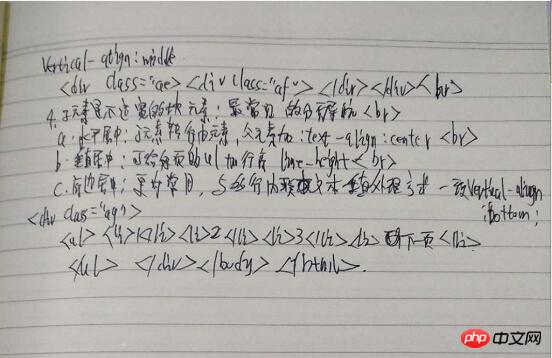 Vertical-align:middle
<div class="ae"><div class="af"></div></div><br>
4.子元素是不定宽的块元素:最常见的分页导航<br>
a.水平居中:子元素转行内元素,父元素加:text-align:center<br>
b.垂直居中:可给分页的ul加行高 line-height<br>
c.底边居中:更为常用,与多行内联文本垂直处理方式一致Vertical-align
:bottom;
<div class="ag">
<ul><li>1</li><li>2</li><li>3</li><li>下一页</li>
<ul></div></body></html>.
php 中文网